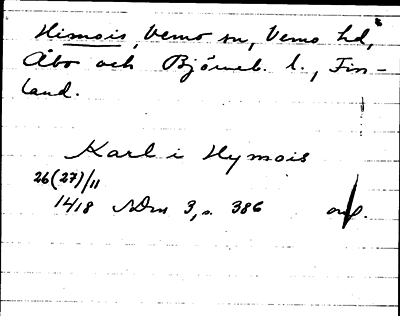 Himois, Vemo sn, Vemo hd,
Åbo och Björneb. l., Fin-
land.
Karl i Hymois
26(27)/11
1418 NDm 3, s. 386 orig.